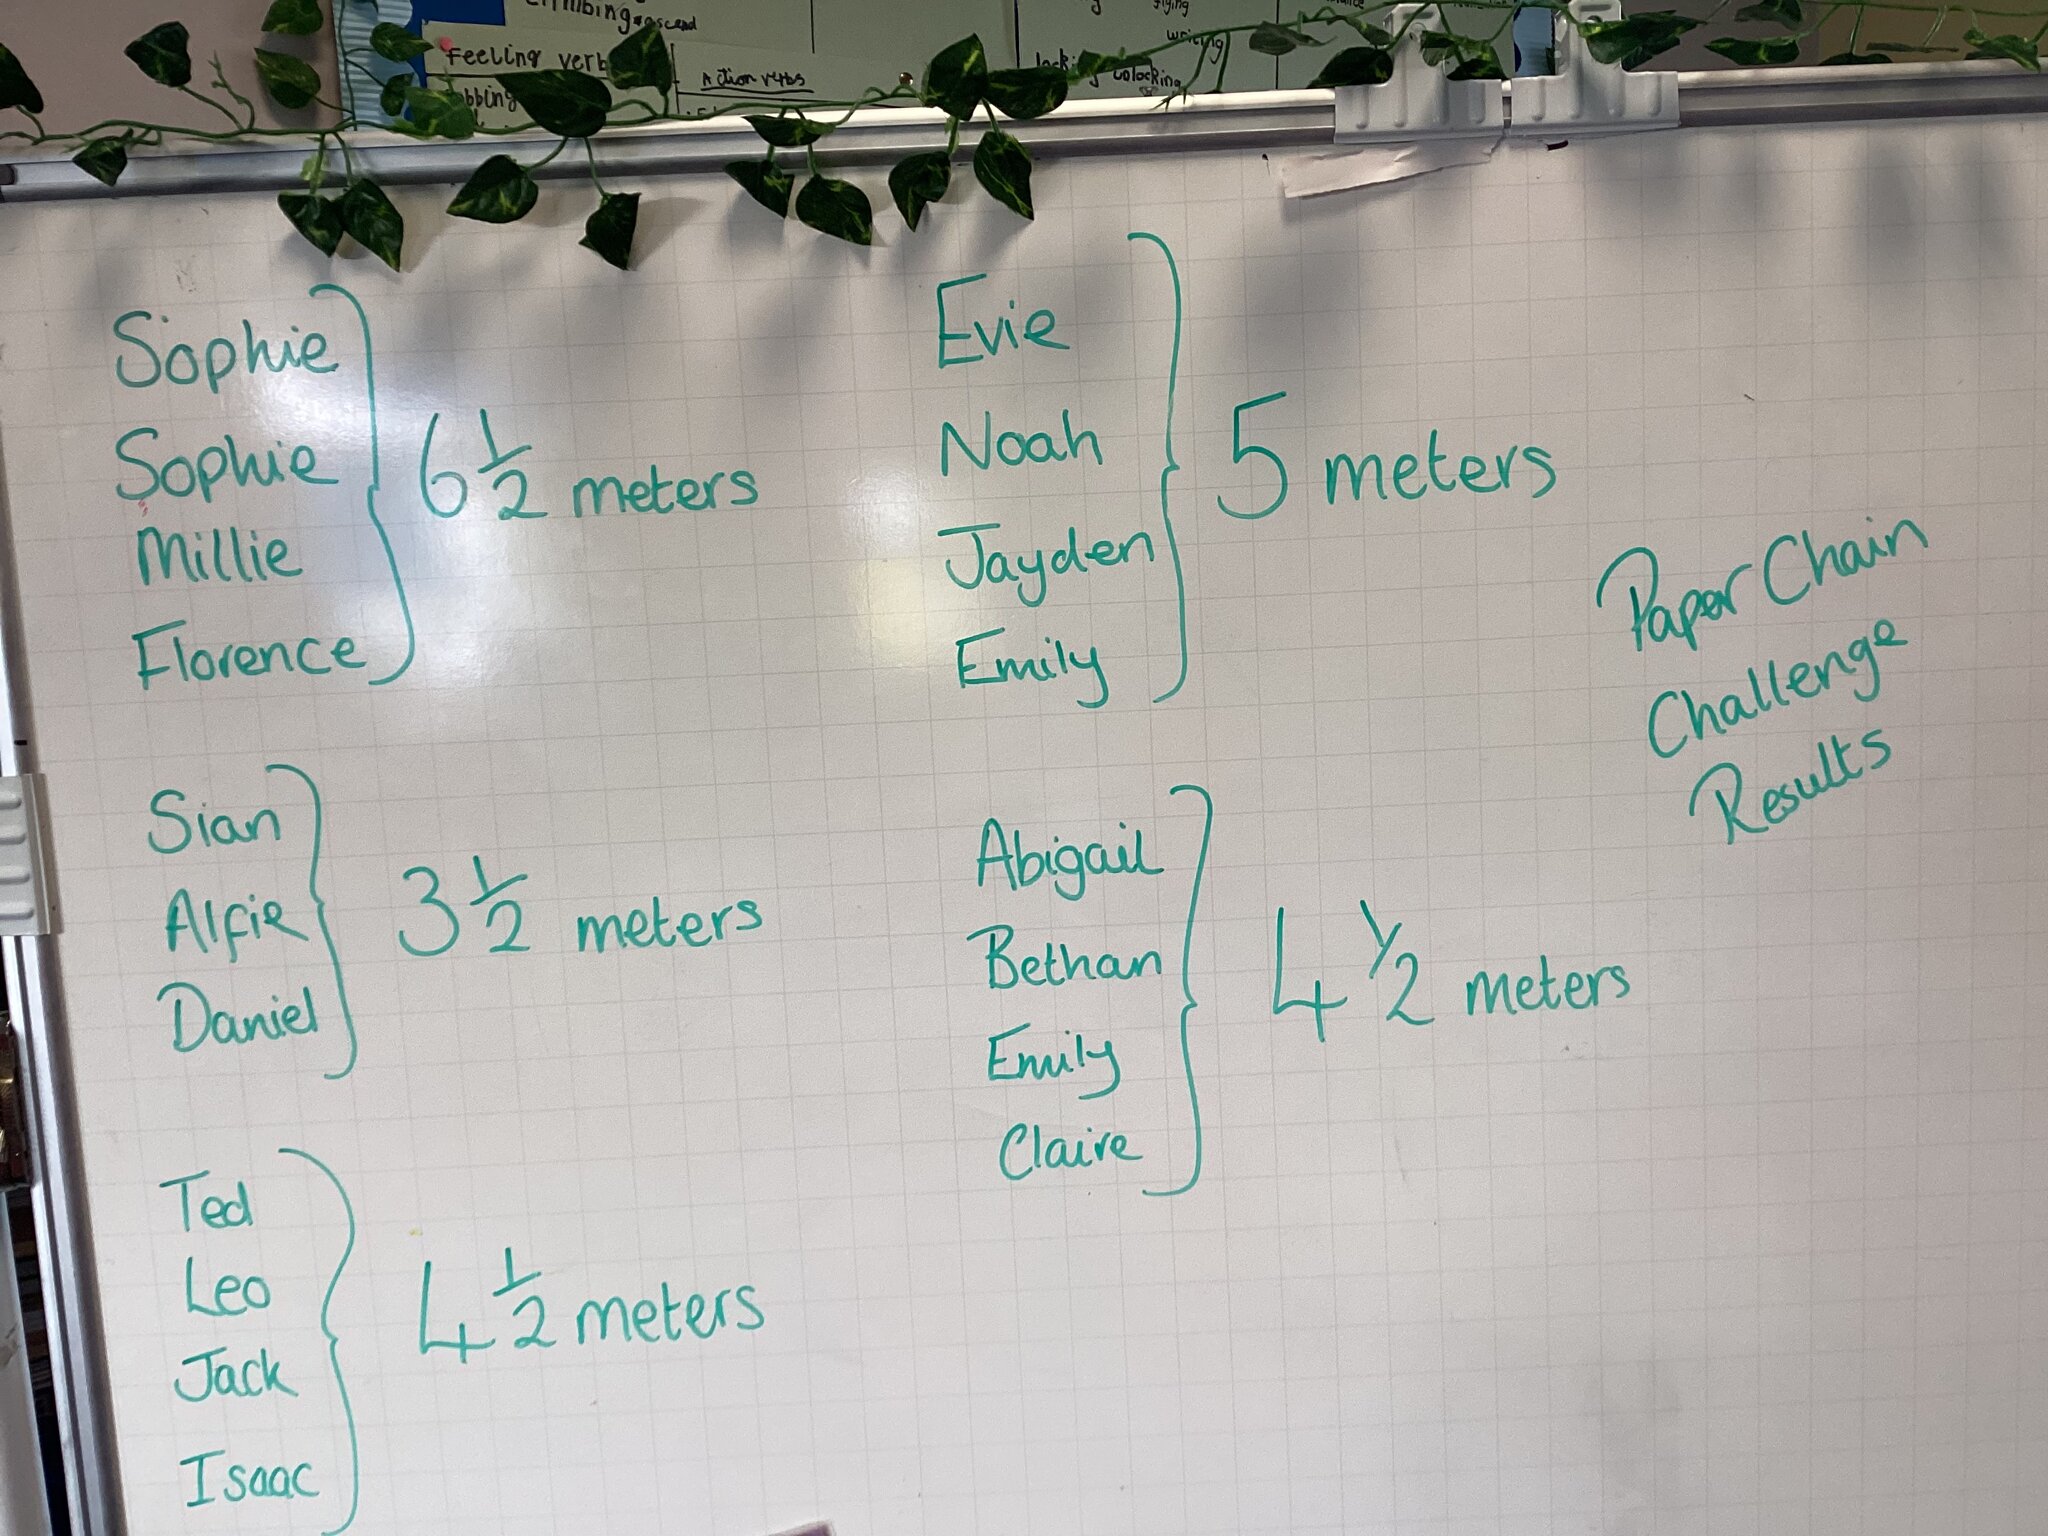 climbing ascend
Feeling verbs
Action verbs
flying
writing
locking unlocking
Sophie
Sophie
Millie
Florence
6 1/2 meters
Evie
Noah
Jayden
Emily
5 meters
Paper Chain
Challenge
Results
Sian
Alfie
Daniel
3 1/2 meters
Abigail
Bethan
Emily
Claire
4 1/2 meters
Ted
Leo
Jack
Isaac
4 1/2 meters